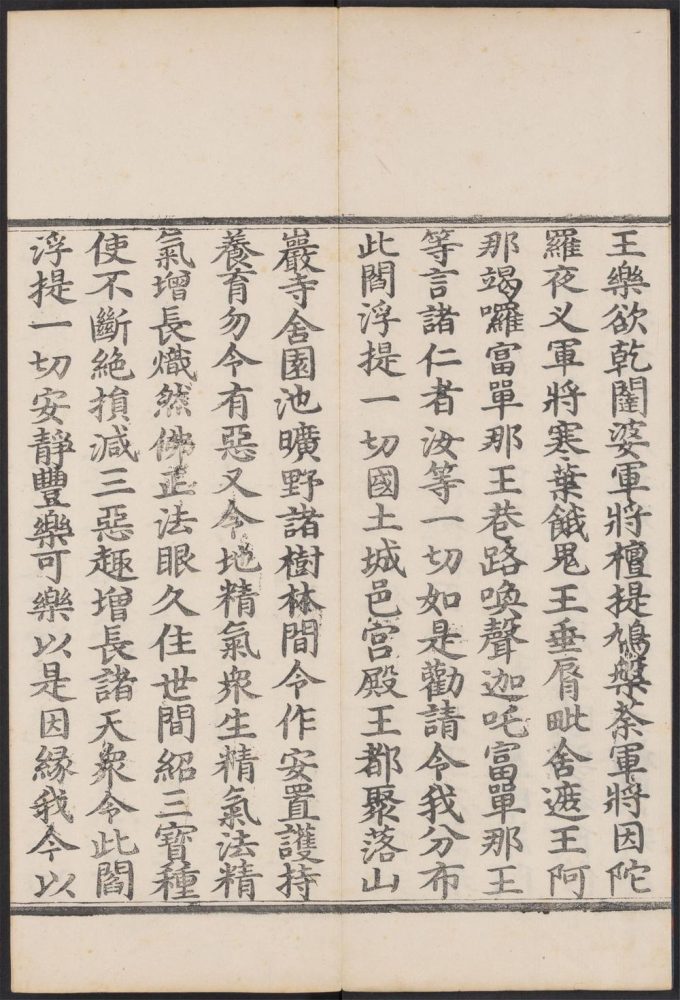 王樂欲乾闥婆軍將檀提鳩槃荼軍將因陀
羅夜叉軍將寒葉餓鬼王垂脣毗舍遮王阿
那竭囉富單那王巷路喚聲迦吒富單那王
等言諸仁者汝等一切如是勸請令我分布
此閻浮提一切國土城邑宫殿王都聚落山
巖寺舍園池曠野諸樹林間令作安置護持
養育勿令有惡又令地精氣衆生精氣法精
氣增長熾然佛正法眼久住世間紹三寶種
使不斷絶損減三惡趣增長諸天衆令此閻
浮提一切安靜豐樂可樂以是因縁我今以